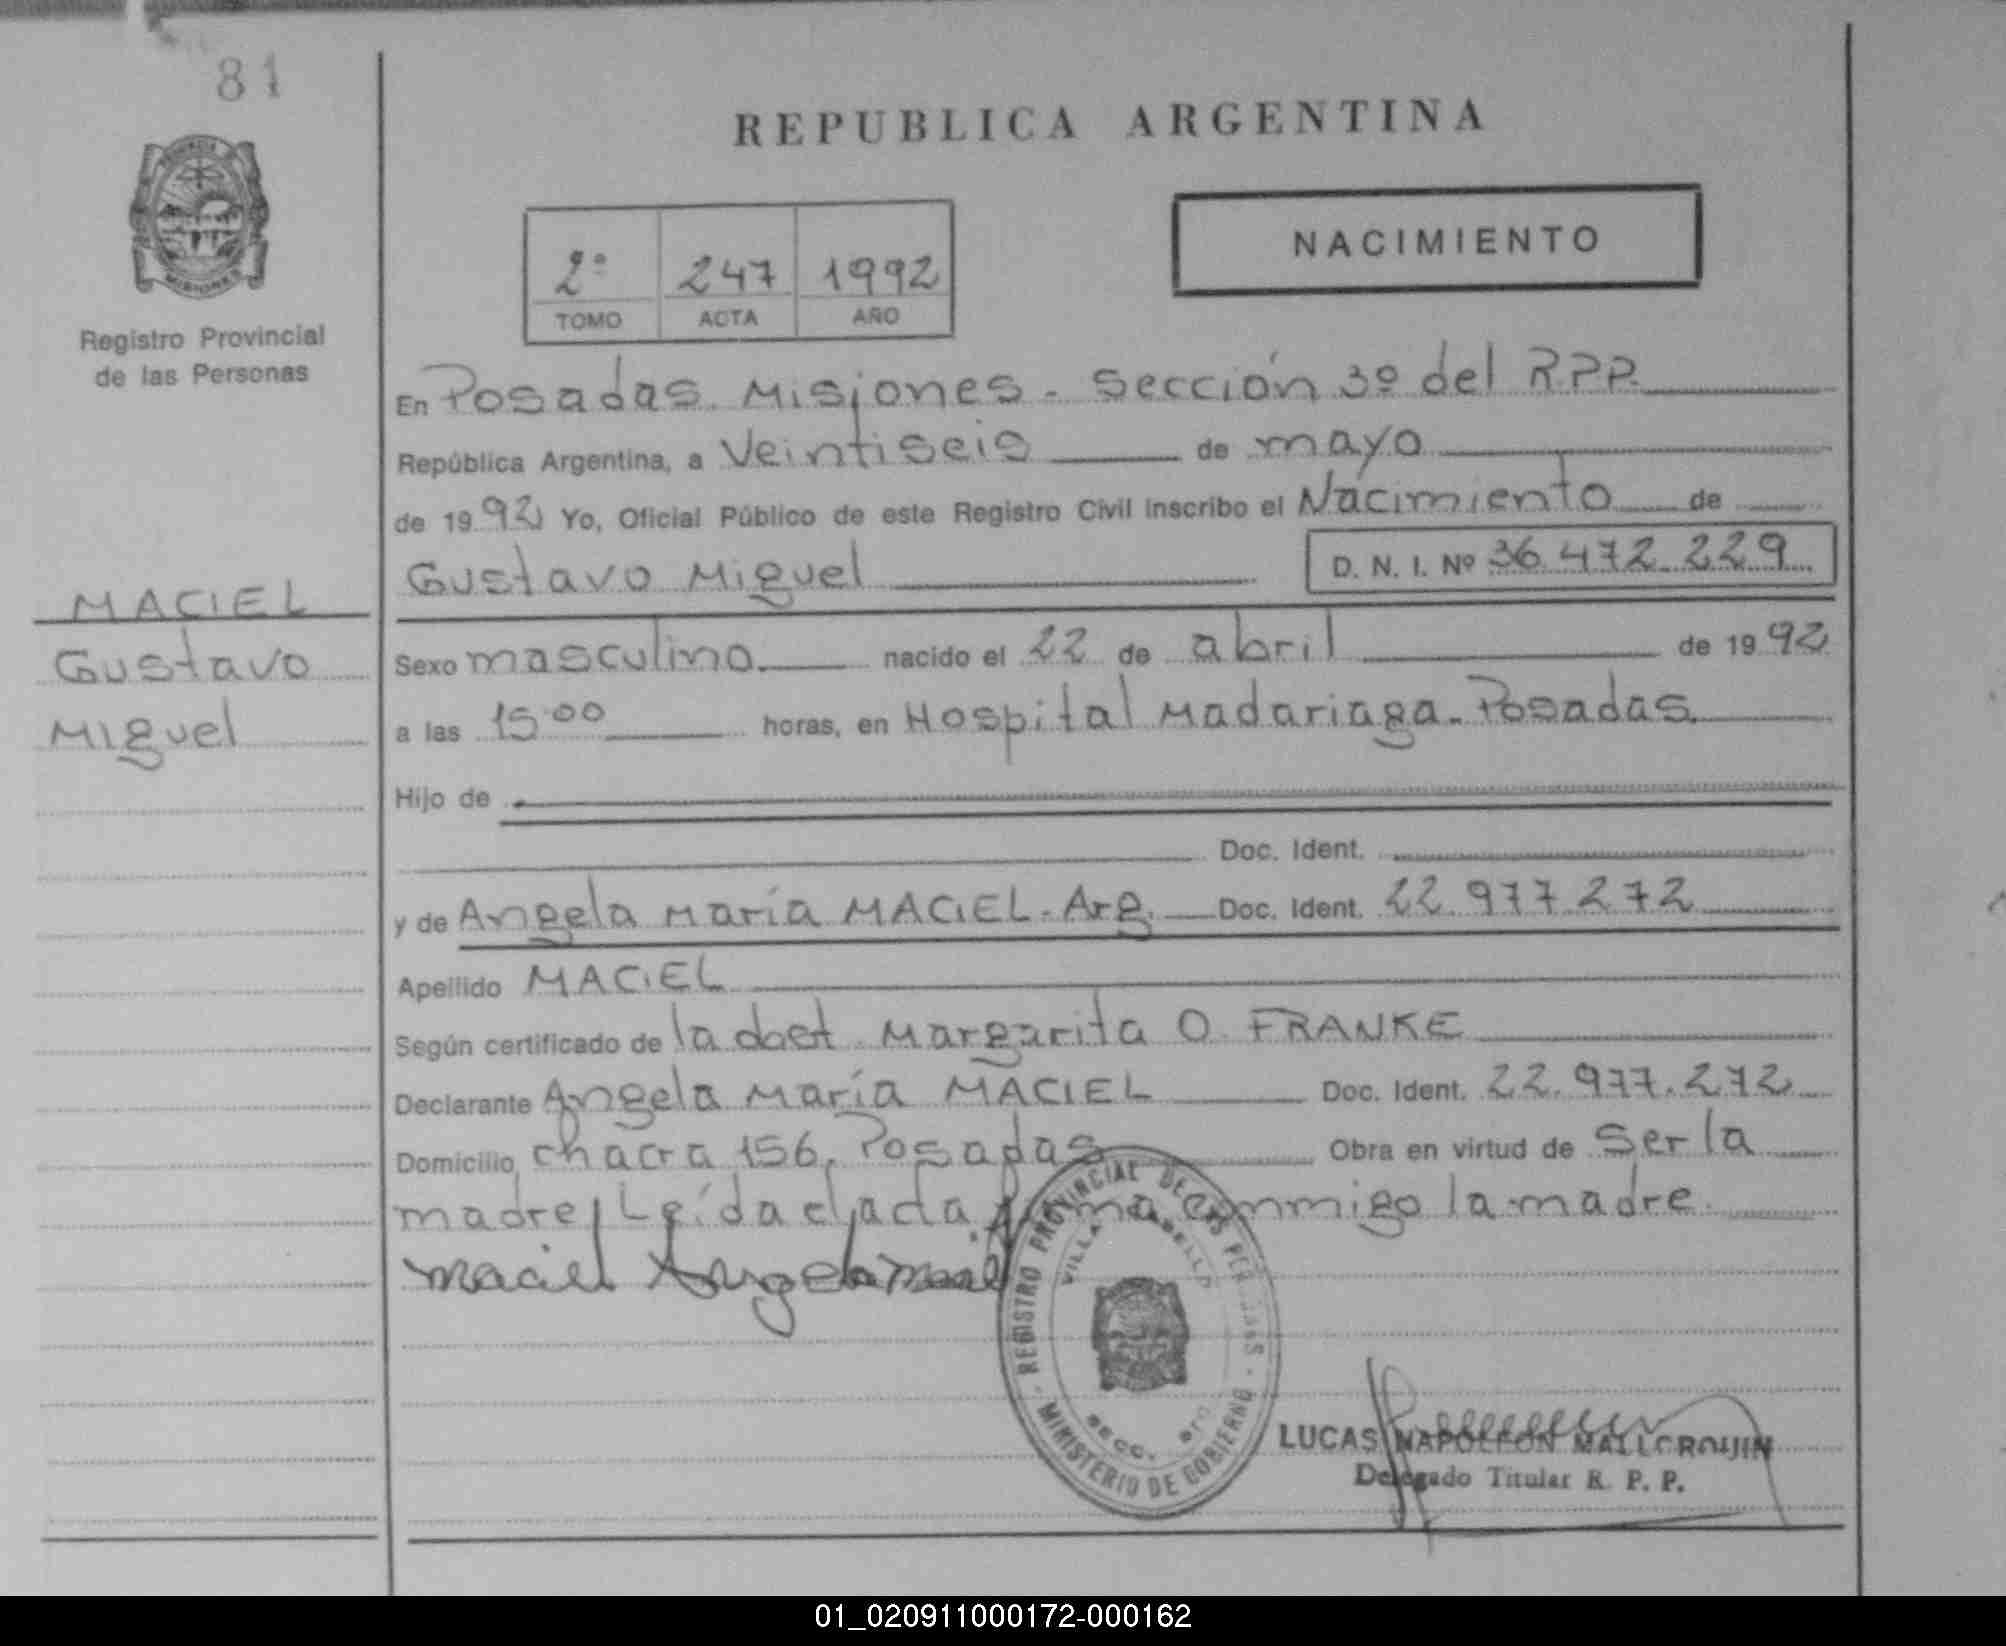 81
REPUBLICA ARGENTINA
PROVINCIA
MISIONES
Registro Provincial
de las Personas
2º 247 1992
TOMO ACTA AÑO
NACIMIENTO
En Posadas. Misiones - Sección 3º del R.P.P.
República Argentina, a Veintiseis de mayo
de 1992 Yo, Oficial Público de este Registro Civil inscribo el Nacimiento de
Gustavo Miguel D. N. I. Nº 36.472.229
MACIEL
Gustavo
Miguel
Sexo masculino. nacido el 22 de abril de 1992
a las 15.00 horas, en Hospital Madariaga - Posadas.
Hijo de
Doc. Ident.
y de Angela María MACIEL - Arg. Doc. Ident. 22.977.272
Apellido MACIEL
Según certificado de la doct. Margarita O. FRANKE
Declarante Angela María MACIEL Doc. Ident. 22.977.272
Domicilio chacra 156, Posadas Obra en virtud de Ser la
madre. Leída el acta firma conmigo la madre.
Maciel Angela
REGISTRO PROVINCIAL DE LAS PERSONAS
VILLA
SECC.
MINISTERIO DE GOBIERNO
LUCAS NAPOLEON MALLORQUIN
Delegado Titular R. P. P.
01_020911000172-000162